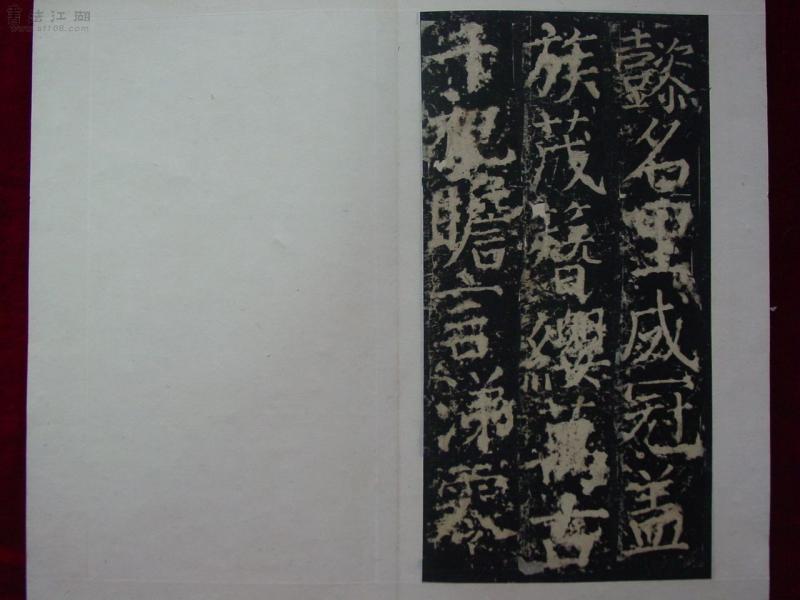 書法江湖
www.sf108.com
懿名里盛冠盖
族茂簪纓萬古
千祀瞻言涕零